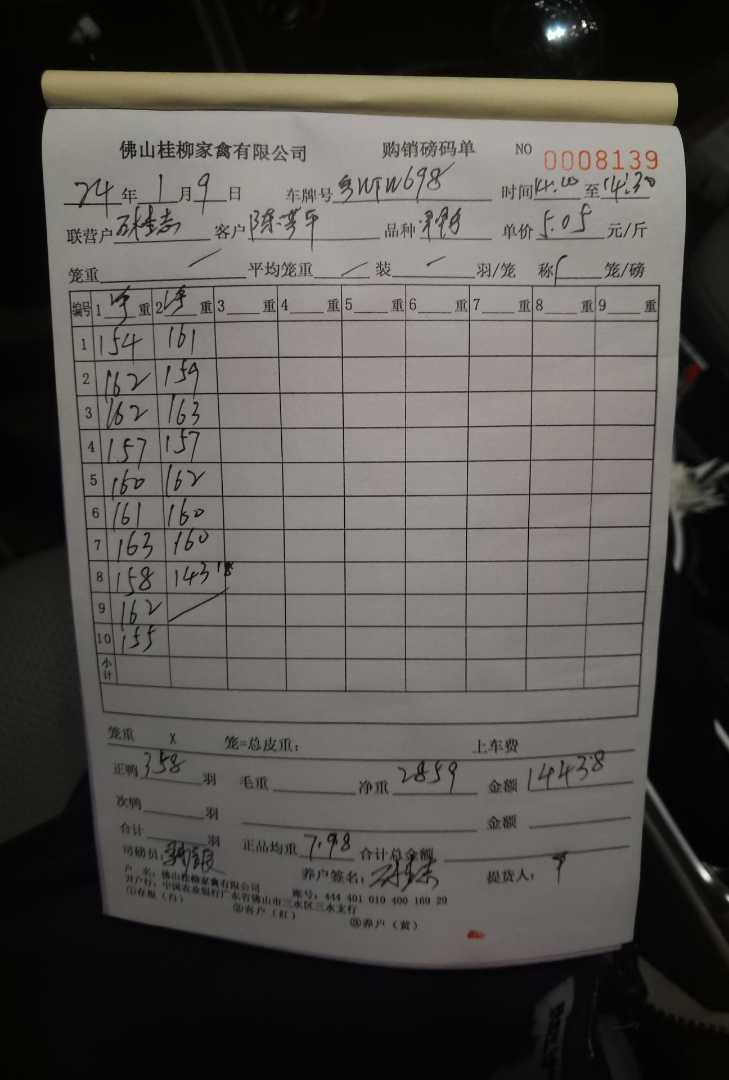 佛山桂柳家禽有限公司 购销磅码单 NO 0008139
24年1月9日 车牌号 粤WTW698 时间 14:00至14:30
联营户 客户 陈 平 品种 单价 5.05 元/斤
笼重 平均笼重 装 羽/笼 称 笼/磅
编号 1 净 重 2 净 重 3 重 4 重 5 重 6 重 7 重 8 重 9 重
1 154 161
2 162 159
3 162 163
4 157 157
5 160 162
6 161 160
7 163 160
8 158 143 18
9 162
10 155
小计
笼重 X 笼=总皮重: 上车费
正鸭 358 羽 毛重 净重 2859 金额 14438
次鸭 羽 金额
合计 羽 正品均重 7.98 合计总金额
司磅员: 养户签名: 提货人: 平
户 名: 佛山桂柳家禽有限公司 账号: 444 401 010 400 169 29
开户行: 中国农业银行广东省佛山市三水区三水支行
①存根(白) ②客户(红) ③养户(黄)